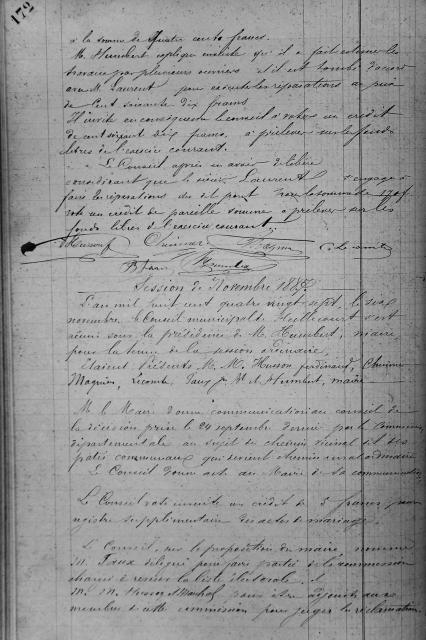 172
à la somme de quatre cents francs.
M. Humbert explique ensuite qu'il a fait estimer les
travaux par plusieurs ouvriers et il est tombé d'accord
avec M. Laurent pour exécuter les réparations au prix
de Cent soixante dix francs
Il invite en conséquence le conseil à voter un crédit
de cent soixante dix francs, à prélever sur les fonds
libres de l'exercice courant.
Le Conseil après en avoir délibéré
considérant que le sieur Laurent s'engage à
faire les réparations du dit pont pour la somme de 170f
vote un crédit de pareille somme à prélever sur les
fonds libres de l'exercice courant.
Husson f Magnien Lecomte
Humbert
Session de Novembre 1887
L'an mil huit cent quatre vingt sept, le six
novembre, le Conseil municipal de s'est
réuni sous la présidence de M. Humbert, maire,
pour la tenue de la session ordinaire,
Étaient présents M. M. Husson ferdinand,
Magnien, Lecomte, et Humbert, maire
M. le Maire donne communication au conseil de
la décision prise le 24 septembre dernier par la Commission
départementale au sujet du chemin rural dit des
patis communaux qui devient chemin rural ordinaire
Le Conseil donne acte au Maire de sa communication
Le Conseil vote ensuite un crédit de 3 francs pour
registre supplémentaire des actes de mariage.
Le Conseil, sur la proposition du maire, nomme
M. délégué pour faire partie de la commission
chargée de reviser la liste électorale. et
M. M. Husson et pour être adjoints aux
membres de cette commission pour juger les réclamations